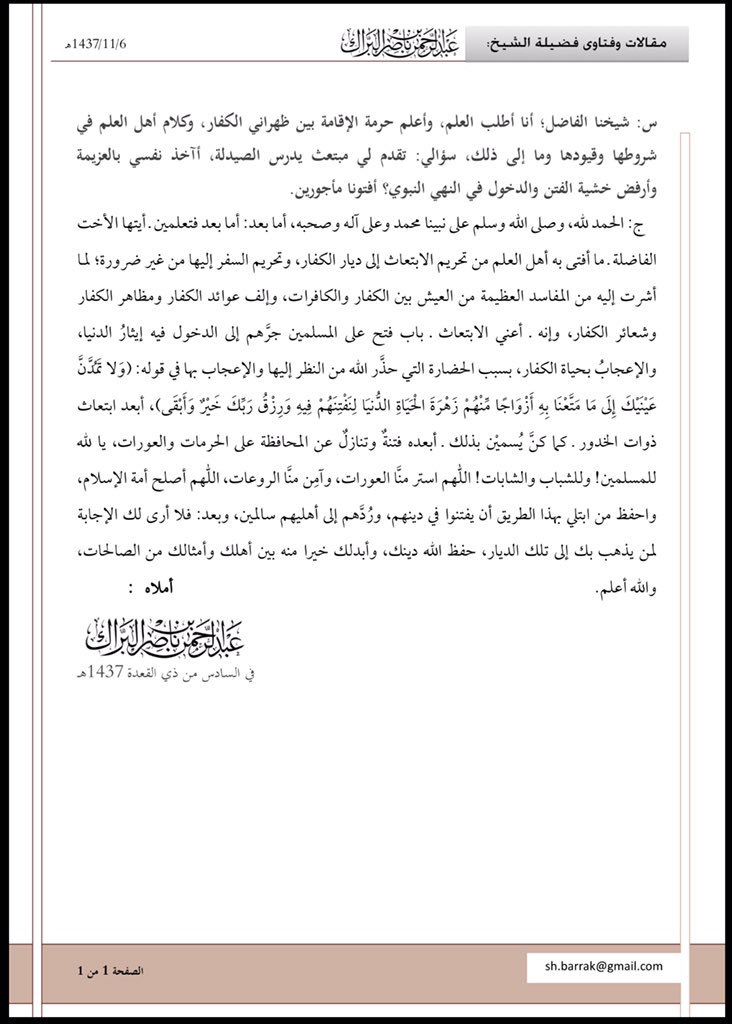 مقالات وفتاوى فضيلة الشيخ: عبدالرحمن بن ناصر البراك 1437/11/6هـ
س: شيخنا الفاضل؛ أنا أطلب العلم، وأعلم حرمة الإقامة بين ظهراني الكفار، وكلام أهل العلم في
شروطها وقيودها وما إلى ذلك، سؤالي: تقدم لي مبتعث يدرس الصيدلة، أآخذ نفسي بالعزيمة
وأرفض خشية الفتن والدخول في النهي النبوي؟ أفتونا مأجورين.
ج: الحمد لله، وصلى الله وسلم على نبينا محمد وعلى آله وصحبه، أما بعد: أما بعد فتعلمين. أيتها الأخت
الفاضلة. ما أفتى به أهل العلم من تحريم الابتعاث إلى ديار الكفار، وتحريم السفر إليها من غير ضرورة؛ لما
أشرت إليه من المفاسد العظيمة من العيش بين الكفار والكافرات، وإلف عوائد الكفار ومظاهر الكفار
وشعائر الكفار، وإنه . أعني الابتعاث . باب فتح على المسلمين جرَّهم إلى الدخول فيه إيثارُ الدنيا،
والإعجابُ بحياة الكفار، بسبب الحضارة التي حذَّر الله من النظر إليها والإعجاب بها في قوله: (وَلا تَمُدَّنَّ
عَيْنَيْكَ إِلَى مَا مَتَّعْنَا بِهِ أَزْوَاجًا مِّنْهُمْ زَهْرَةَ الْحَيَاةِ الدُّنيَا لِنَفْتِنَهُمْ فِيهِ وَرِزْقُ رَبِّكَ خَيْرٌ وَأَبْقَى)، أبعد ابتعاث
ذوات الخدور . كما كنَّ يُسميْن بذلك . أبعده فتنةٌ وتنازلٌ عن المحافظة على الحرمات والعورات، يا لله
للمسلمين! وللشباب والشابات! اللّهم استر منَّا العورات، وآمِن منَّا الروعات، اللّهم أصلح أمة الإسلام،
واحفظ من ابتلي بهذا الطريق أن يفتنوا في دينهم، ورُدَّهم إلى أهليهم سالمين، وبعد: فلا أرى لك الإجابة
لمن يذهب بك إلى تلك الديار، حفظ الله دينك، وأبدلك خيرا منه بين أهلك وأمثالك من الصالحات،
والله أعلم. أملاه :
عبدالرحمن بن ناصر البراك
في السادس من ذي القعدة 1437هـ
sh.barrak@gmail.com الصفحة 1 من 1